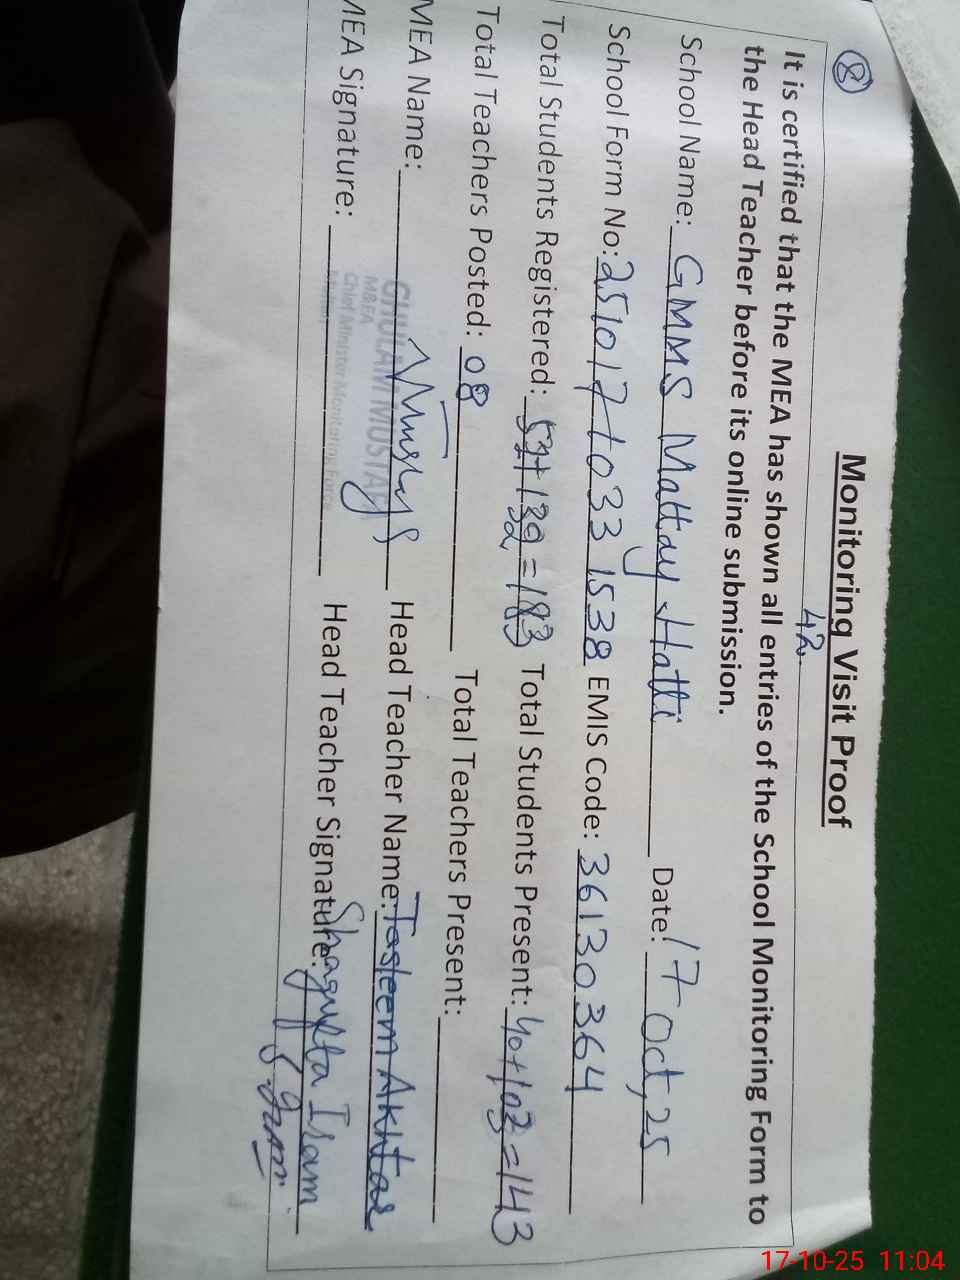 8
Monitoring Visit Proof
42
It is certified that the MEA has shown all entries of the School Monitoring Form to
the Head Teacher before its online submission.
School Name: GMMS Mattay Hatti Date: 17 Oct, 25
School Form No: 2510171033 1538 EMIS Code: 36130364
Total Students Registered: = 183 Total Students Present: 40+103=143
Total Teachers Posted: 08 Total Teachers Present:
MEA Name: Head Teacher Name: Tasleem Akhtar
GHULAM MUSTAFA
M&EA
Chief Minister Monitoring Force
MEA Signature: Head Teacher Signature: Shagufta Iram
17-10-25 11:04